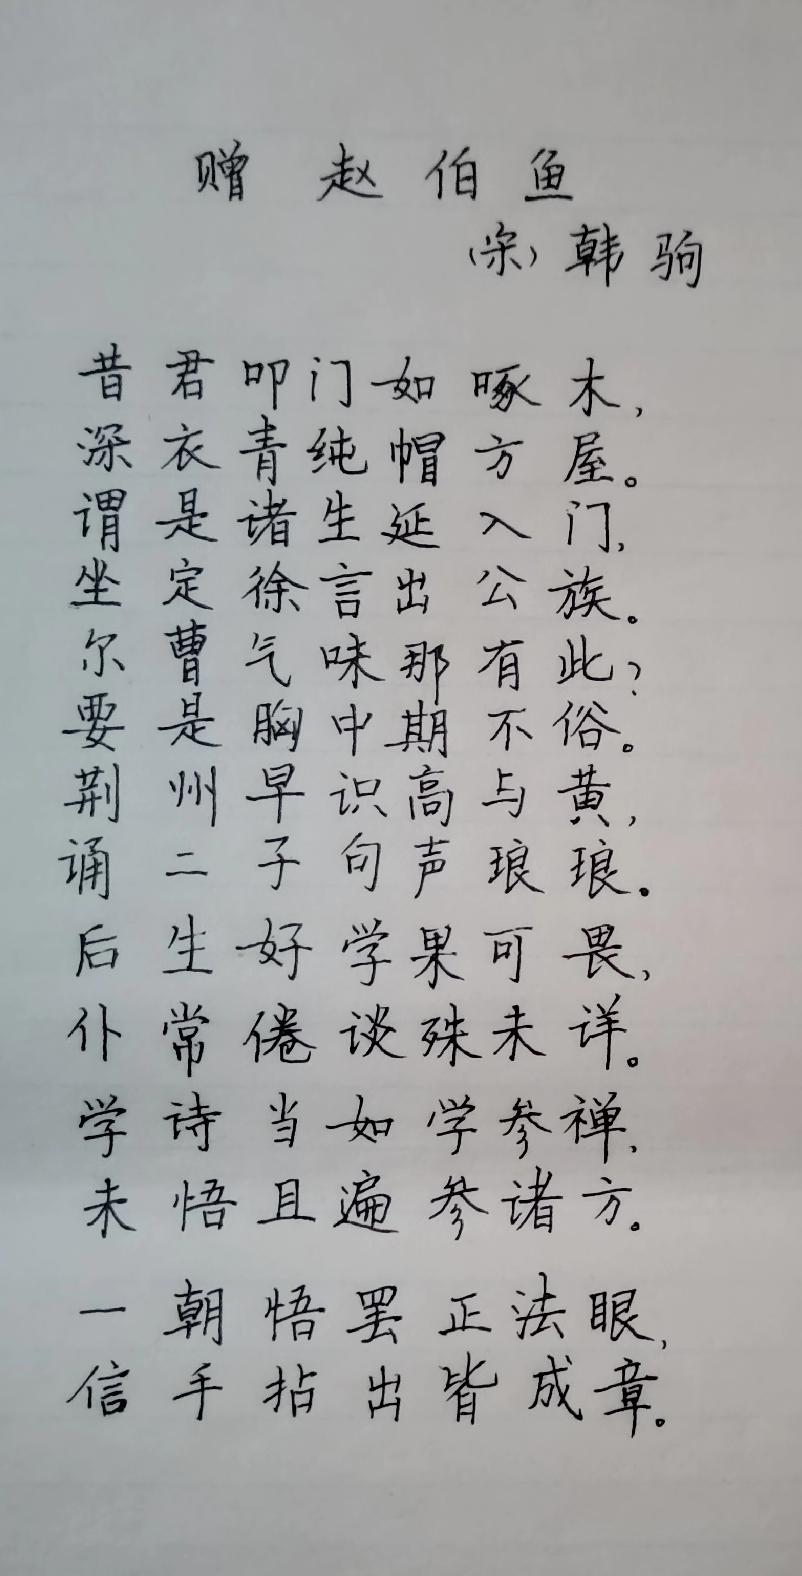 赠赵伯鱼
（宋）韩驹
昔君叩门如啄木，
深衣青纯帽方屋。
谓是诸生延入门，
坐定徐言出公族。
尔曹气味那有此？
要是胸中期不俗。
荆州早识高与黄，
诵二子句声琅琅。
后生好学果可畏，
仆常倦谈殊未详。
学诗当如学参禅，
未悟且遍参诸方。
一朝悟罢正法眼，
信手拈出皆成章。